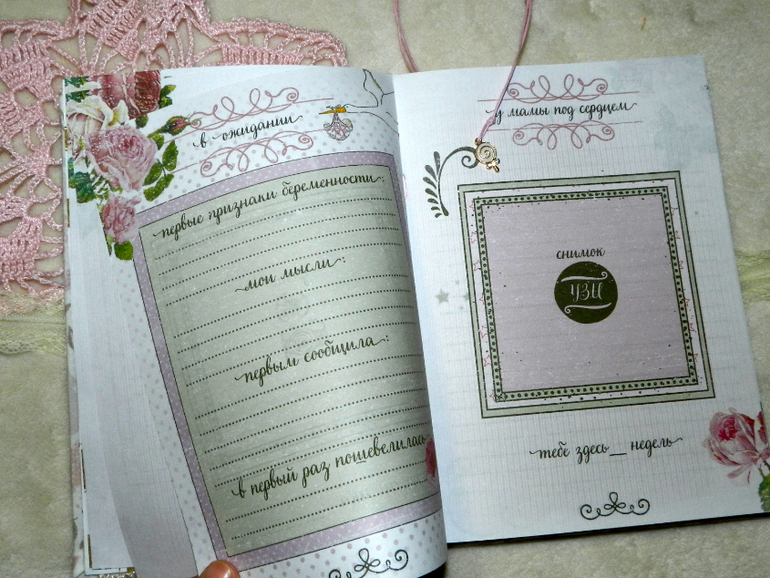 в ожидании
первые признаки беременности:
мои мысли:
первым сообщила:
в первый раз пошевелилась
у мамы под сердцем
снимок
УЗИ
тебе здесь__ недель